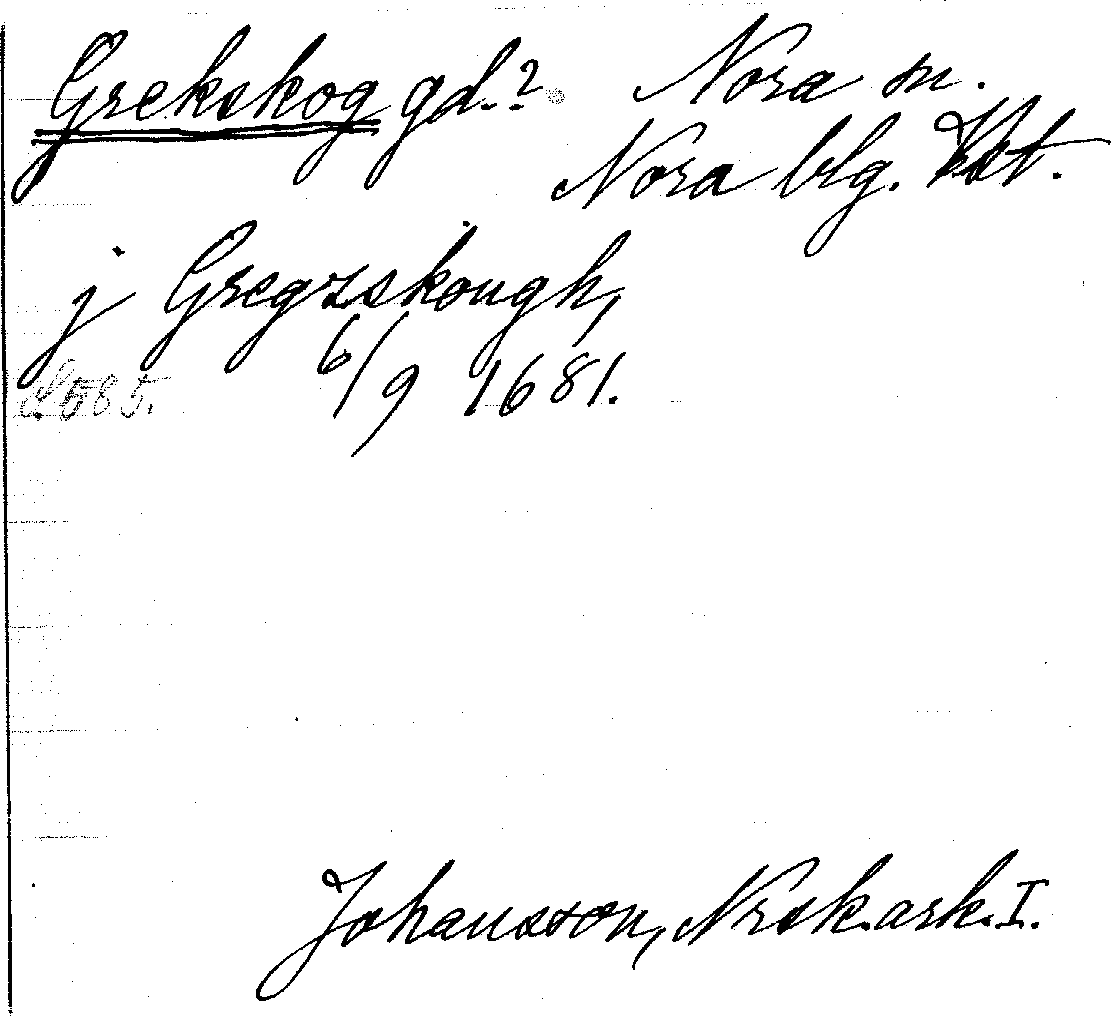 Grekskog gd.? Nora sn.
Nora blg. Vst.
j Gregzskough,
6/9 1681.
S. 585.
Johansson, Nrsk. ark. I.